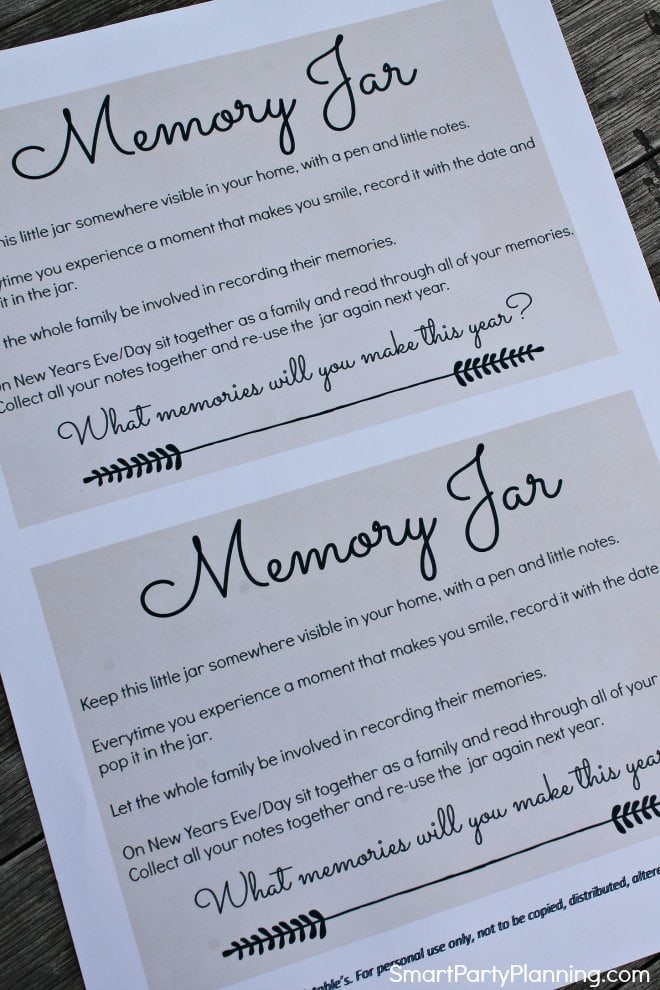 Memory Jar
this little jar somewhere visible in your home, with a pen and little notes.
time you experience a moment that makes you smile, record it with the date and
it in the jar.
the whole family be involved in recording their memories.
On New Years Eve/Day sit together as a family and read through all of your memories.
Collect all your notes together and re-use the jar again next year.
What memories will you make this year?
Memory Jar
Keep this little jar somewhere visible in your home, with a pen and little notes.
Everytime you experience a moment that makes you smile, record it with the date
pop it in the jar.
Let the whole family be involved in recording their memories.
On New Years Eve/Day sit together as a family and read through all of your
Collect all your notes together and re-use the jar again next year.
What memories will you make this year
table's. For personal use only, not to be copied, distributed, altere
SmartPartyPlanning.com